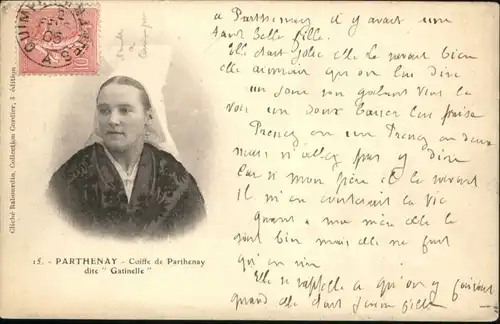 QUIMPER
à Parthenay il y avait une
tant belle fille.
Elle était jolie elle le savait bien
elle aimait qu'on lui dise
un jour son galant vint la
voir un doux baiser lui
Prenez en un Prenez en deux
mais n'allez pas y dire
Car si mon père il le savait
Il m'en couterait la vie
Quant à ma mère elle le
sait bien mais elle ne fait
qu'en rire
Elle se rappelle ce qu'on y
quand elle était jeune fille
Cliché Balesourdin, Collection Cordier, 3e édition
15. - PARTHENAY - Coiffe de Parthenay
dite " Gatinelle "